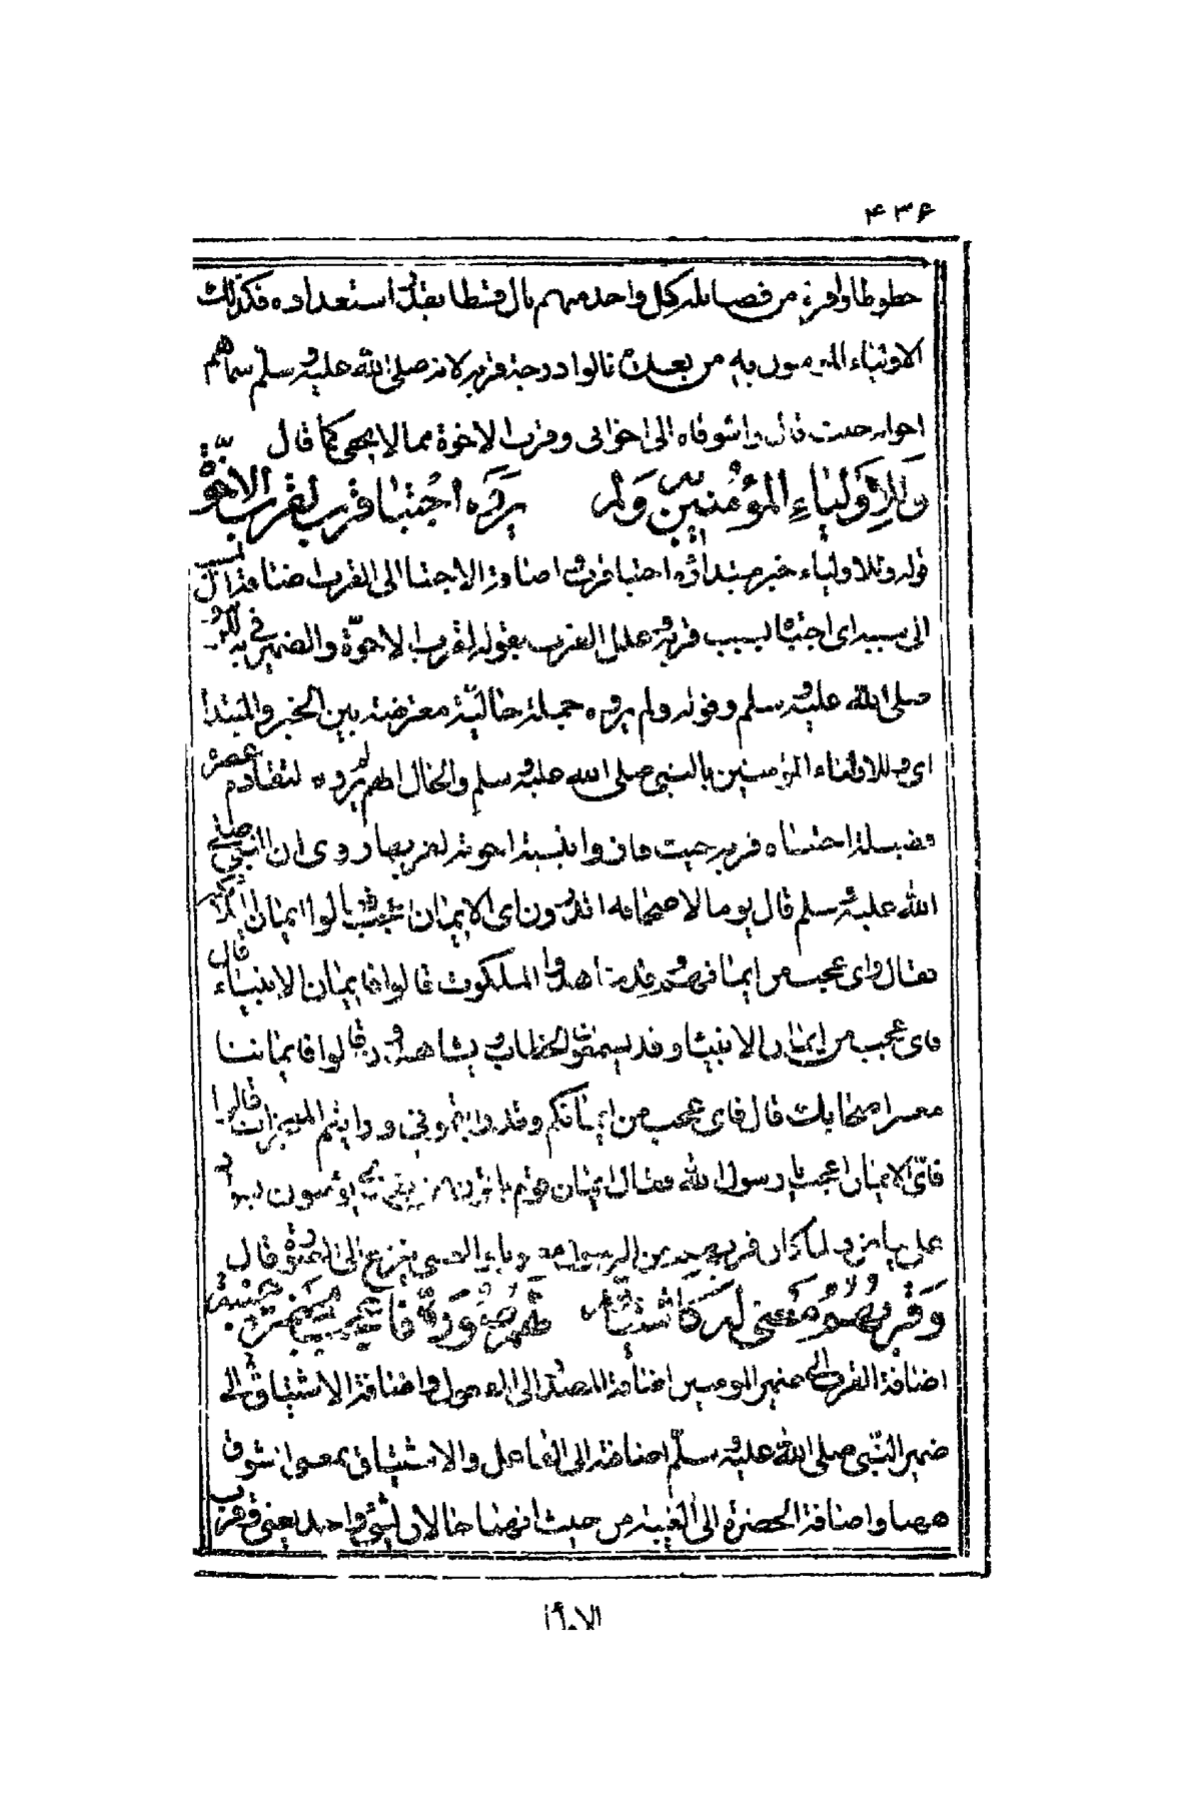 ۴۳۶
حظوظا وافرة من فضائله كل واحد منهم نال قسطا بقدر استعداده فكذلك
الاولياء المؤمنون به من بعده نالوا درجة قربه لانه صلى الله عليه وسلم سماهم
اخوانه حيث قال واشوقاه الى اخوانى وقرب الاخوة مما لا يخفى كما قال
وَلِلْأَوْلِيَاءِ المُؤْمِنِينَ بِهِ وَلَمْ يَرَوْهُ اجْتِنَا قُرْبٍ لِقُرْبِ الاخُوَّةِ
قوله وللاولياء خبر مبتداؤه اجتنا قربه اضافة الاجتنا الى القرب اضافة المسبب
الى سببه اى اجتناء بسبب قربه علل القرب بقوله لقرب الاخوّة والضمير فى به للرسول
صلى الله عليه وسلم وقوله ولم يروه جملة حالية معترضة بين الخبر والمبتدا
اى وللاولياء المؤمنين بالنبى صلى الله عليه وسلم والحال انهم لم يروه لتقادم عصره
فضيلة اجتناء قربه حيث فازوا بنسبة اخوته لقربها روى ان النبى صلى
الله عليه وسلم قال يوما لاصحابه اتدرون اى الايمان اعجب قالوا ايمان الملائكة
فقال واى عجب من ايمانهم وقد شاهدوا الملكوت قالوا فايمان الانبياء قال
فاى عجب من ايمان الانبياء وقد يسمعون الخطاب ويشاهدون قالوا فايماننا
معشر اصحابك قال فاى عجب من ايمانكم وقد رايتمونى ورايتم المعجزات قالوا
فاى الايمان اعجب يا رسول الله فقال ايمان قوم ياتون من بعدى يؤمنون
على قال
وَقُرْبُهُمُ مَعْنًى لَهُ كَاشْتِيَاقِهِ لَهُمْ صُورَةً فَاعْجَبْ لِحَضْرَةِ غَيْبَةِ
اضافة القرب الى ضمير المؤمنين اضافة المصدر الى المفعول واضافة الاشتياق الى
ضمير النبى صلى الله عليه وسلم اضافة الى الفاعل والاشتياق بمعنى الشوق
ههنا واضافة الحضرة الى الغيبة من حيث انهما حالان لشئ واحد يعنى وقرب
الاوليا